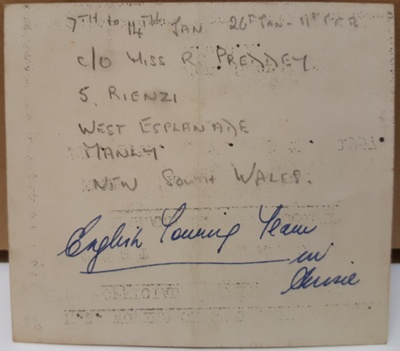 7TH to 14TH JAN 26TH JAN - 11TH FEB
c/o MISS R. PREDDEY.
5. RIENZI
WEST ESPLANADE
MANLY
NEW SOUTH WALES.
English Touring Team
in
Aussie